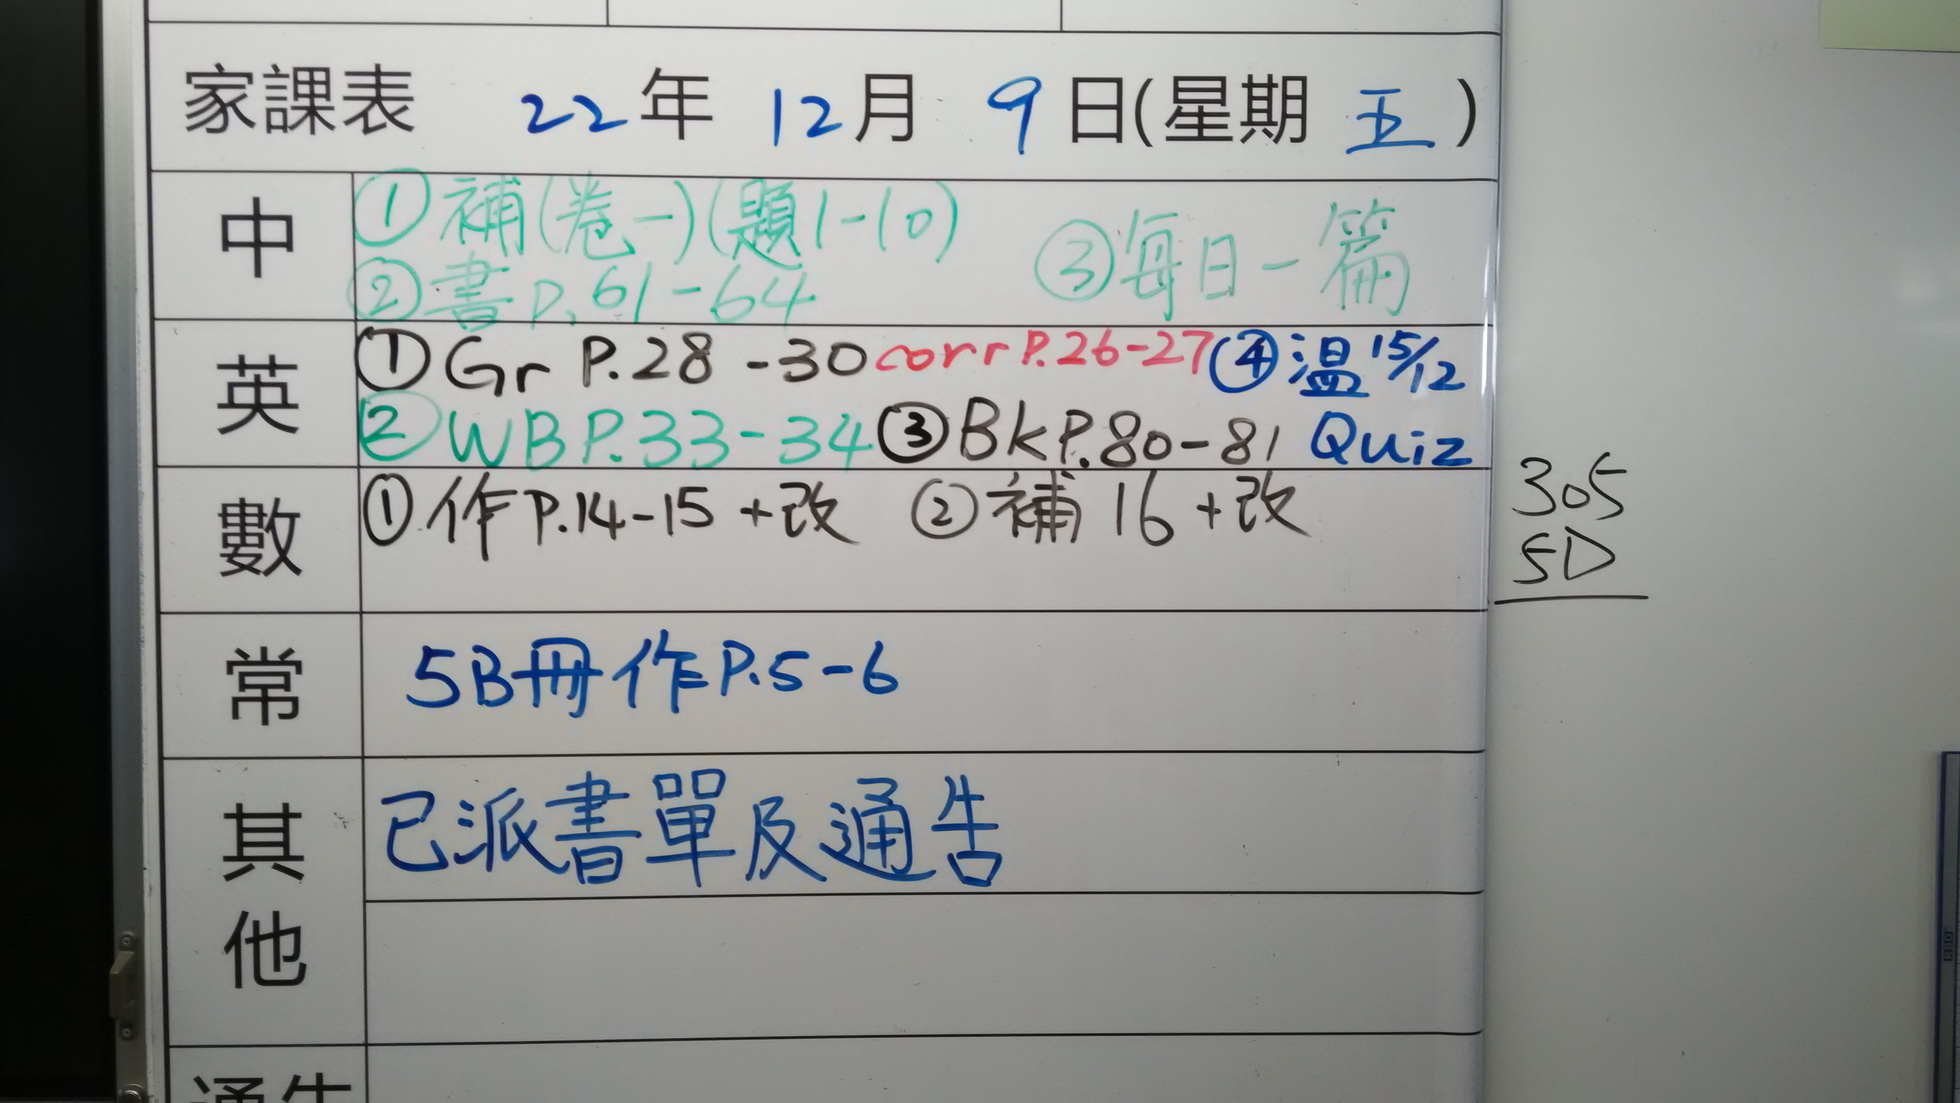 家課表 22年 12月 9日(星期 五)
中
①補(卷一)(題1-10)
②書P.61-64
③每日一篇
英
①Gr P.28-30 corr P.26-27 ④溫15/12
②WB P.33-34 ③Bk P.80-81 Quiz
數
①作P.14-15+改 ②補16+改
常
5B冊作P.5-6
其他
已派書單及通告
通告
305
5D